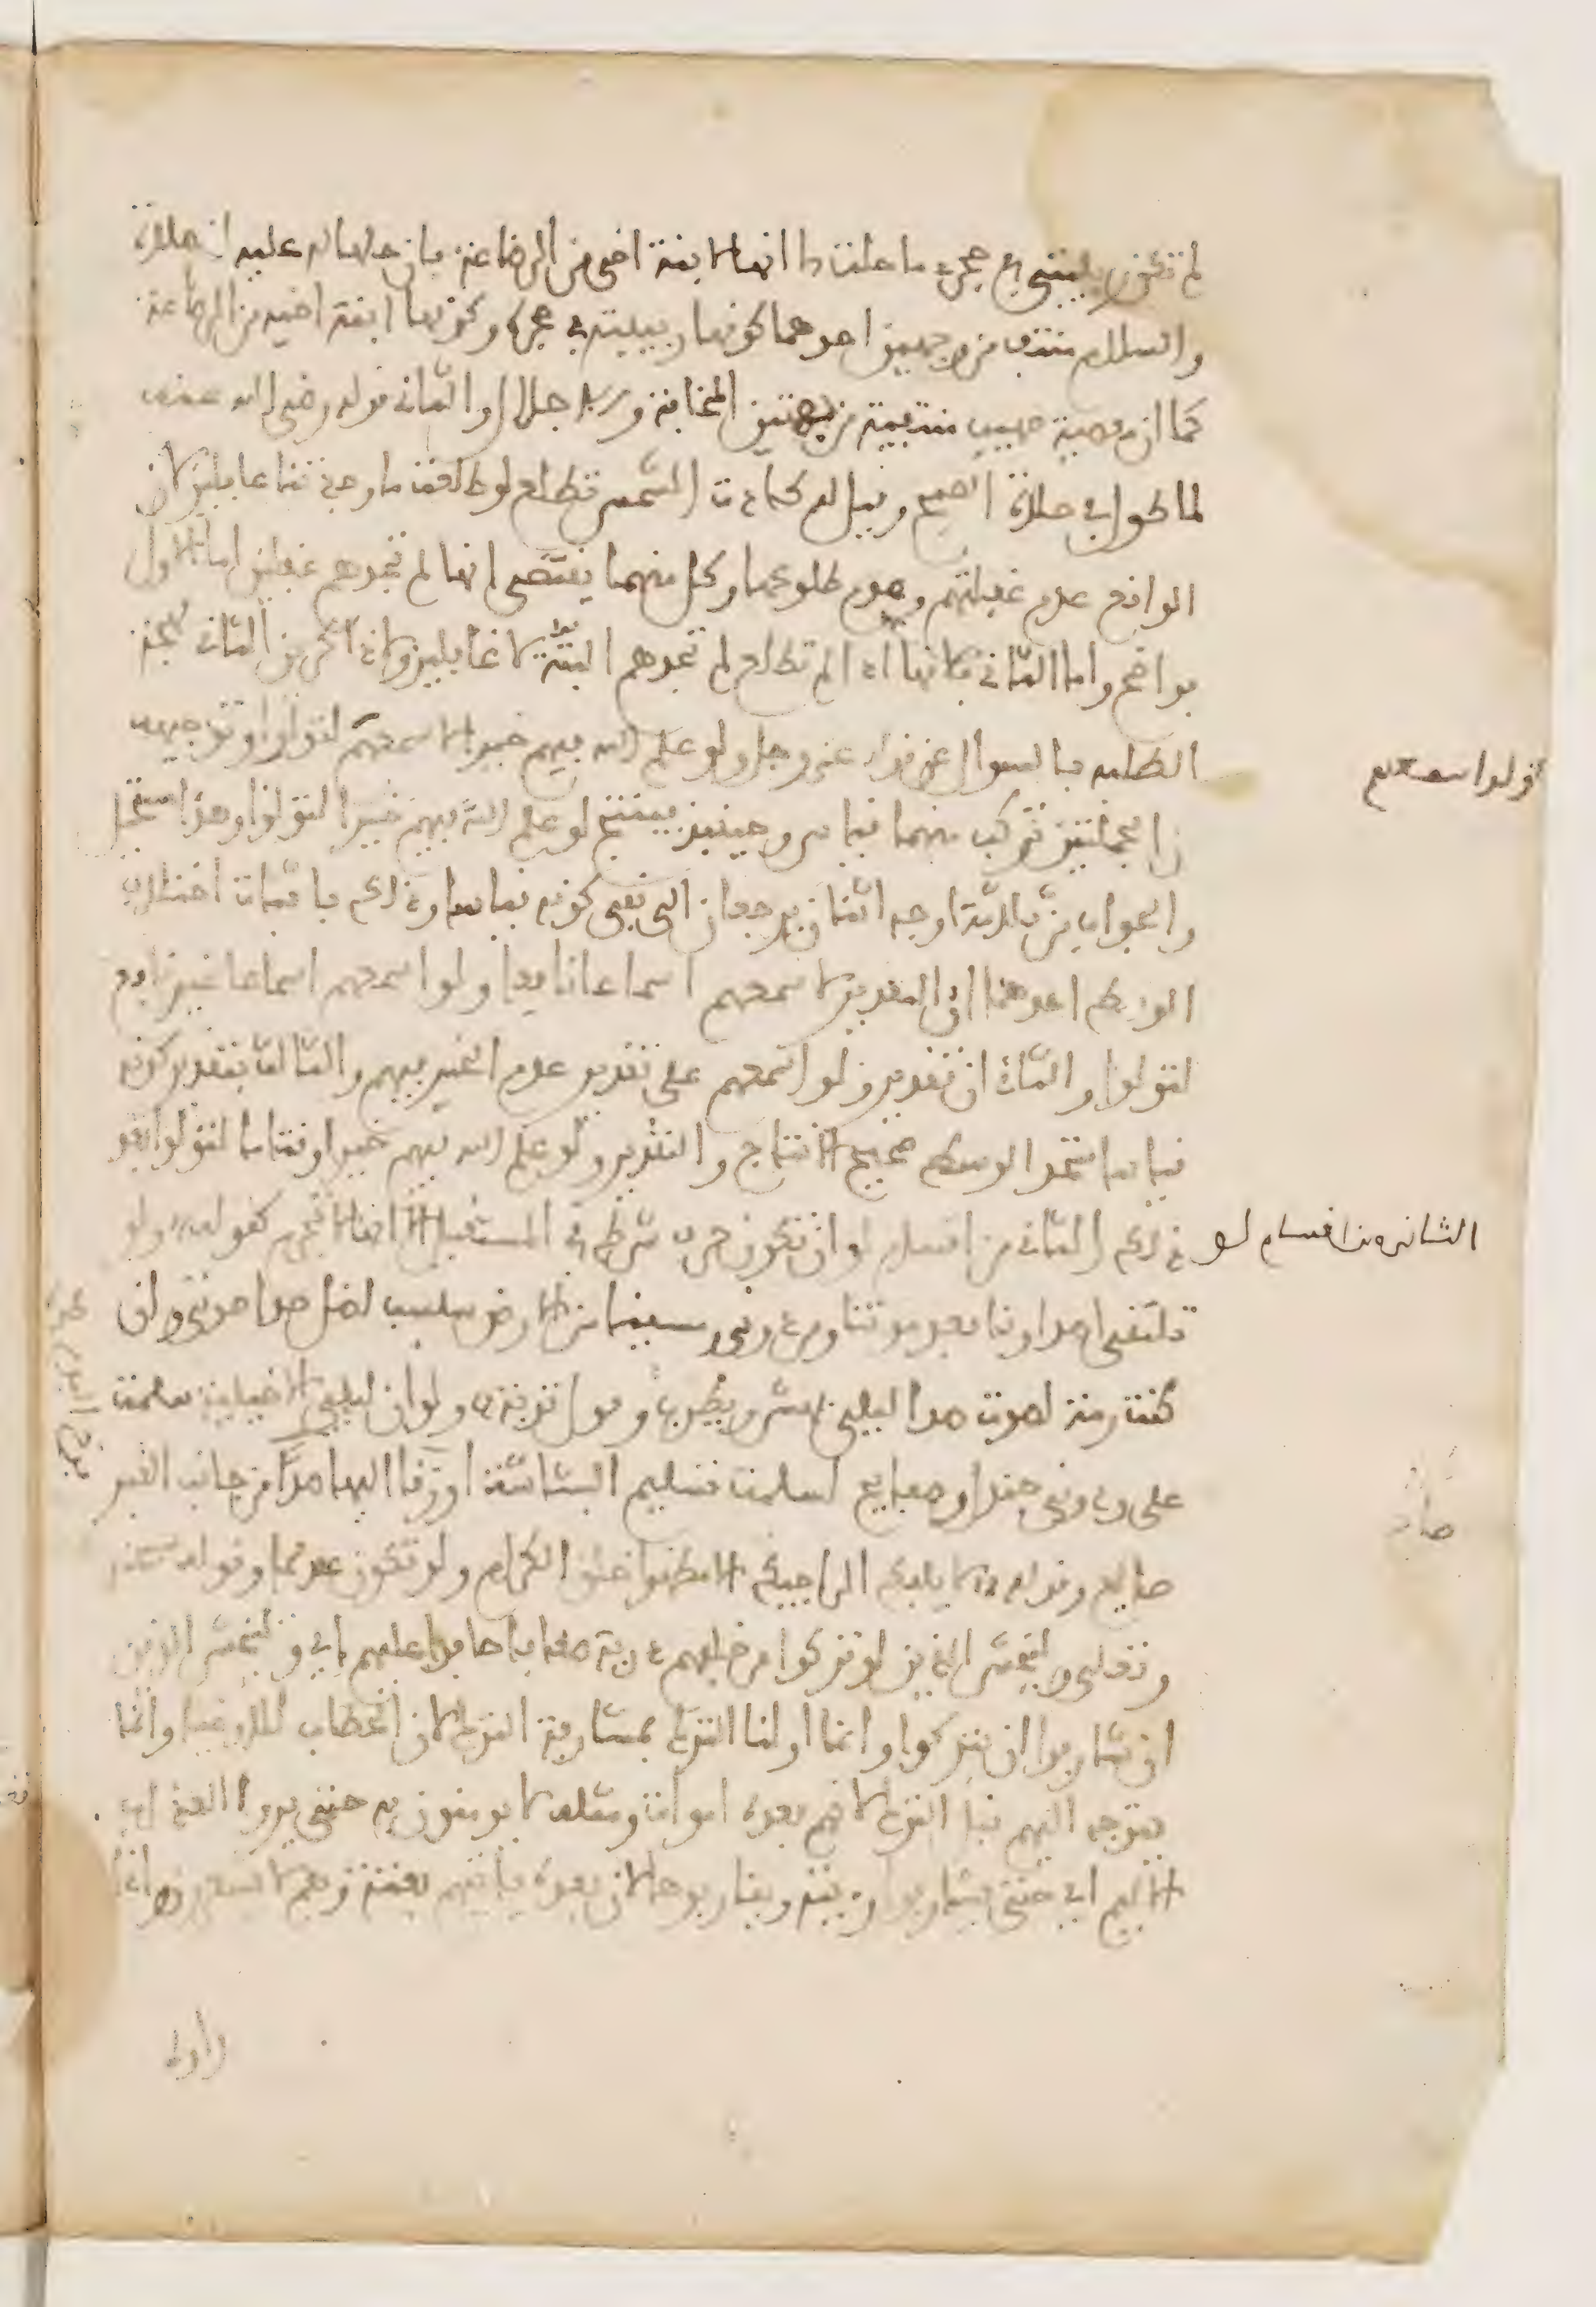 لم تكن ربيبتي في حجري ما حلت لي انها لابنة اخي من الرضاعة فان حلها له عليه الصلاة
والسلام منتف من وجهين احدهما كونها ربيبته في حجره وكونها ابنة اخيه من الرضاعة
كما ان معصية صهيب منتفية من جهتين المخافة والاجلال والثاني قوله رضي الله عنه
لما طول في صلاة الصبح وقيل له كادت الشمس تطلع لو طلعت ما وجدتنا غافلين لان
الواقع عدم غفلتهم وعدم طلوعها وكل منهما يقتضي انها لم تجدهم غافلين اما الاول
فواضح واما الثاني فلانها اذا لم تطلع لم تجدهم البتة لا غافلين ولا ذاكرين الثالث لهجت
الطلبة بالسؤال عن قوله عز وجل ولو علم الله فيهم خيرا لاسمعهم لتولوا وتوجيهه
ان الجملتين تركب منهما قياس وحينئذ فينتج لو علم الله فيهم خيرا لتولوا وهذا مستحيل
والجواب من ثلاثة اوجه اثنان يرجعان الى نفي كونه قياسا وذلك باثبات اختلاف
الوسط احدهما ان التقدير لاسمعهم اسماعا نافعا ولو اسمعهم اسماعا غير نافع
لتولوا والثاني ان تقدير ولو اسمعهم على تقدير عدم الخير فيهم والثالث بتقدير كونه
قياسا متحد الوسط صحيح الانتاج والتقدير ولو علم الله فيهم خيرا وقتا ما لتولوا بعد
الثاني من اقسام لو
ذلك الثاني من اقسام لو ان تكون حرف شرط في المستقبل الا انها لا تجزم كقوله ولو
تلتقي اصداؤنا بعد موتنا ومن دون رمسينا من الارض سبسب لظل صدا صوتي وان
كنت رمة لصوت صدا ليلى يهش ويطرب وقول توبة ولو ان ليلى الاخيلية سلمت
علي ودوني جندل وصفايح لسلمت تسليم البشاشة او زقا اليها صدا من جانب القبر
صايح وقوله لا يلفك الراجيك الا مظهرا خلق الكرام ولو تكون عديما وقوله
وليخش الذين لو تركوا من خلفهم ذرية ضعافا خافوا عليهم اي وليخش الذين
ان شارفوا ان يتركوا وانما اولنا الترك بمشارفة الترك لان الخطاب للاوصيا وانما
يتوجه اليهم قبل الترك لانهم بعده اموات ومثله لا يومنون به حتى يروا العذاب
الاليم اي حتى يشارفوا رويته ويقاربوها لان بعده فياتيهم بغتة وهم لا يشعرون